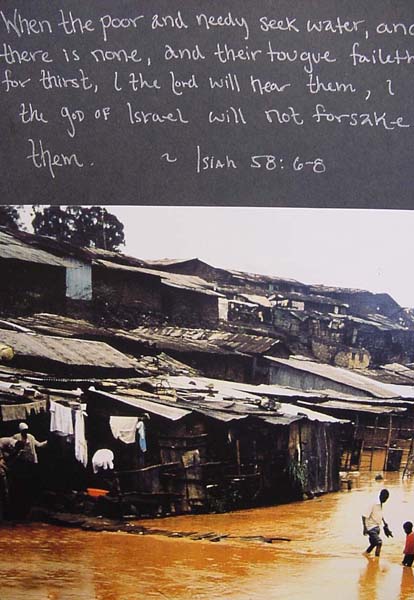 When the poor and needy seek water, and
there is none, and their tougue faileth
for thirst, I the Lord will hear them, I
the god of Israel will not forsake
them. ~ Isiah 58:6-8